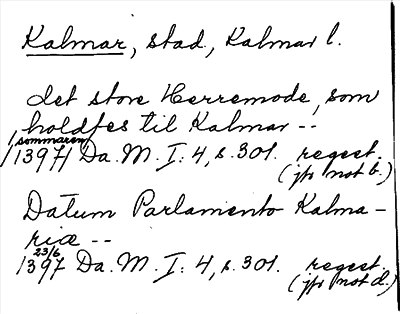 Kalmar, stad, Kalmar l.
det store Herremøde, som
holdtes til Kalmar --
/sommaren/
1397/ Da. M. I: 4, s. 301. regest.
(jfr not b.)
Datum Parlamento Kalma-
riæ --
23/6
1397 Da. M. I: 4, s. 301. regest.
(jfr not d.)